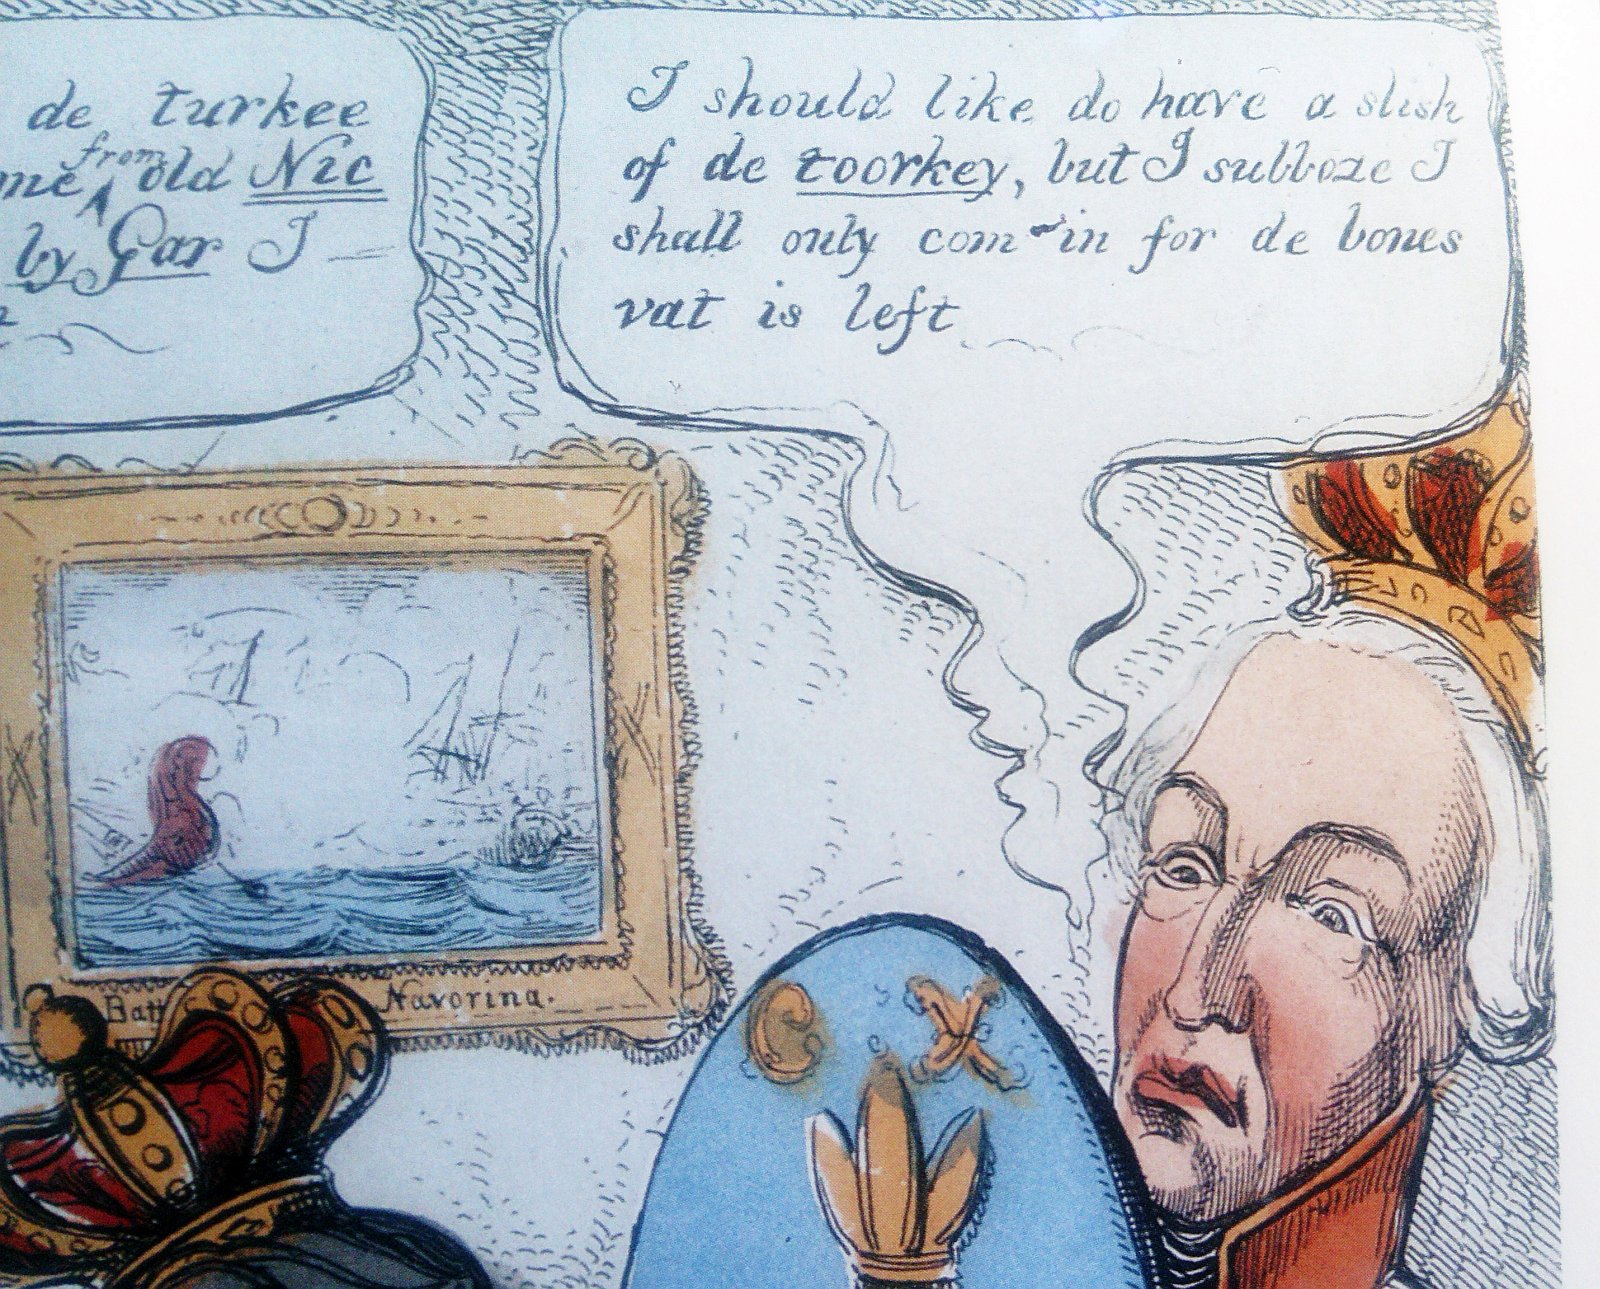 de turkee
me from old Nic
by Gar I
I should like do have a slish
of de toorkey, but I subboze I
shall only com in for de bones
vat is left
Batt Navorina.
C X